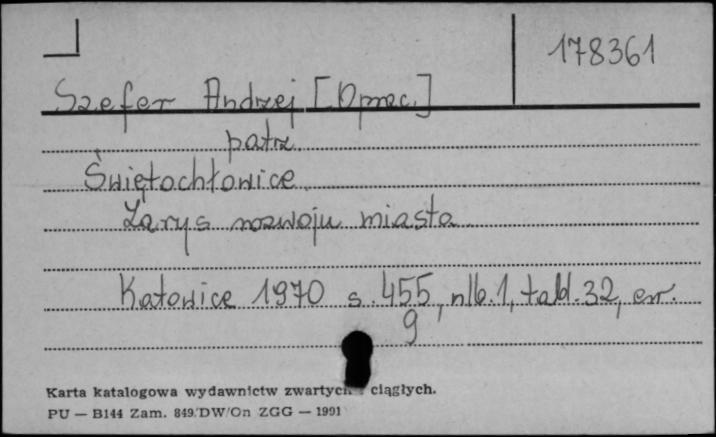 178361
Szefer Andrzej [Oprac.]
patrz
Świętochłowice
Zarys rozwoju miasta
Katowice 1970 s. 455, nlb. 1, tabl. 32, err.
9
Karta katalogowa wydawnictw zwartych i ciągłych.
PU — B144 Zam. 849/DW/On ZGG — 1991